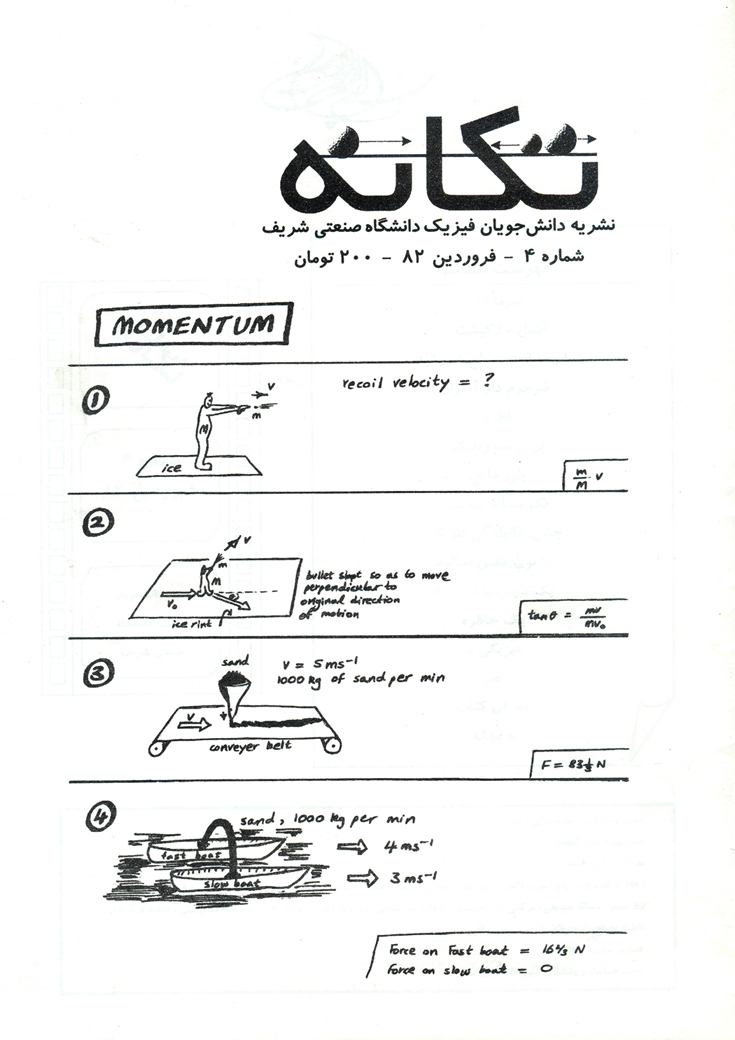 تکانه
نشریه دانش‌جویان فیزیک دانشگاه صنعتی شریف
شماره ۴ - فروردین ۸۲ - ۲۰۰ تومان
MOMENTUM
1
recoil velocity = ?
v
m
M
ice
m/M v
2
v
m
M
v₀
θ
ice rint
bullet shot so as to move
perpendicular to
original direction
of motion
tanθ = mv/mv₀
3
sand
v = 5ms⁻¹
1000 kg of sand per min
v
conveyer belt
F = 83⅓ N
4
sand, 1000 kg per min
fast boat
4 ms⁻¹
slow boat
3 ms⁻¹
Force on Fast boat = 16⅔ N
Force on slow boat = 0